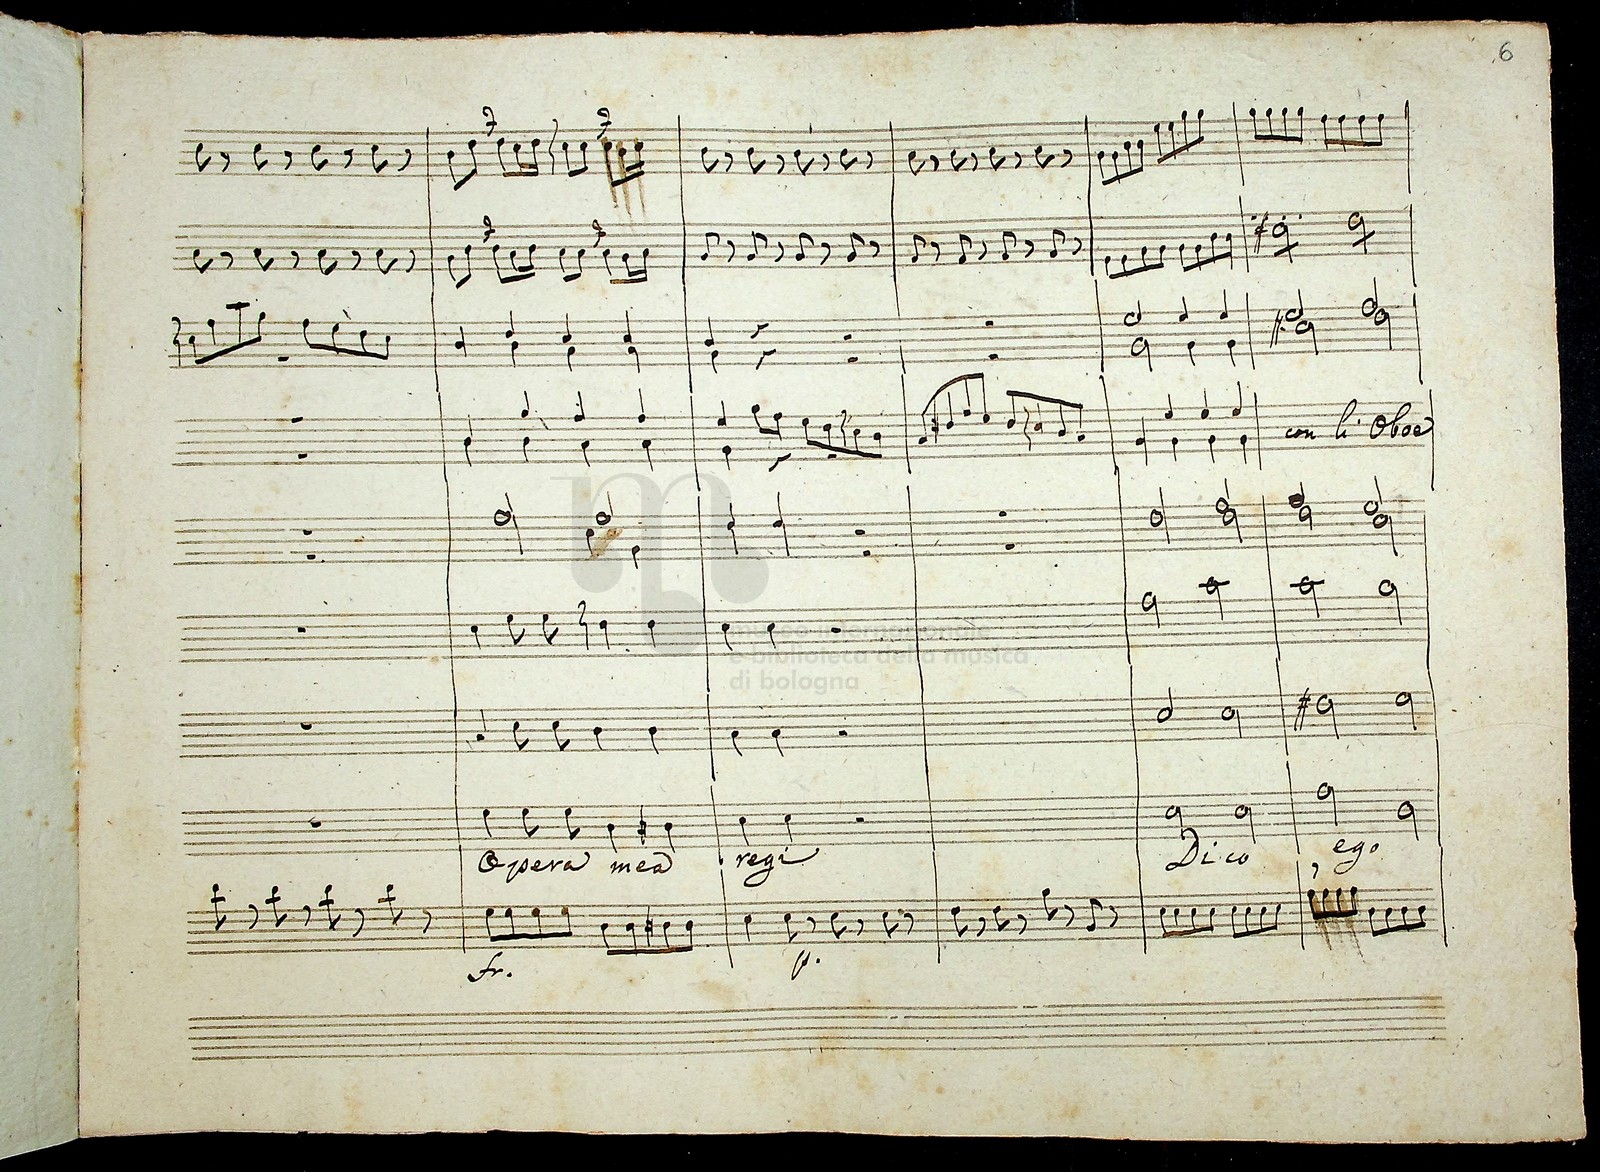 6
con li Oboe
museo internazionale
e biblioteca della musica
di bologna
Opera mea regi
Dico, ego
fr.
p.